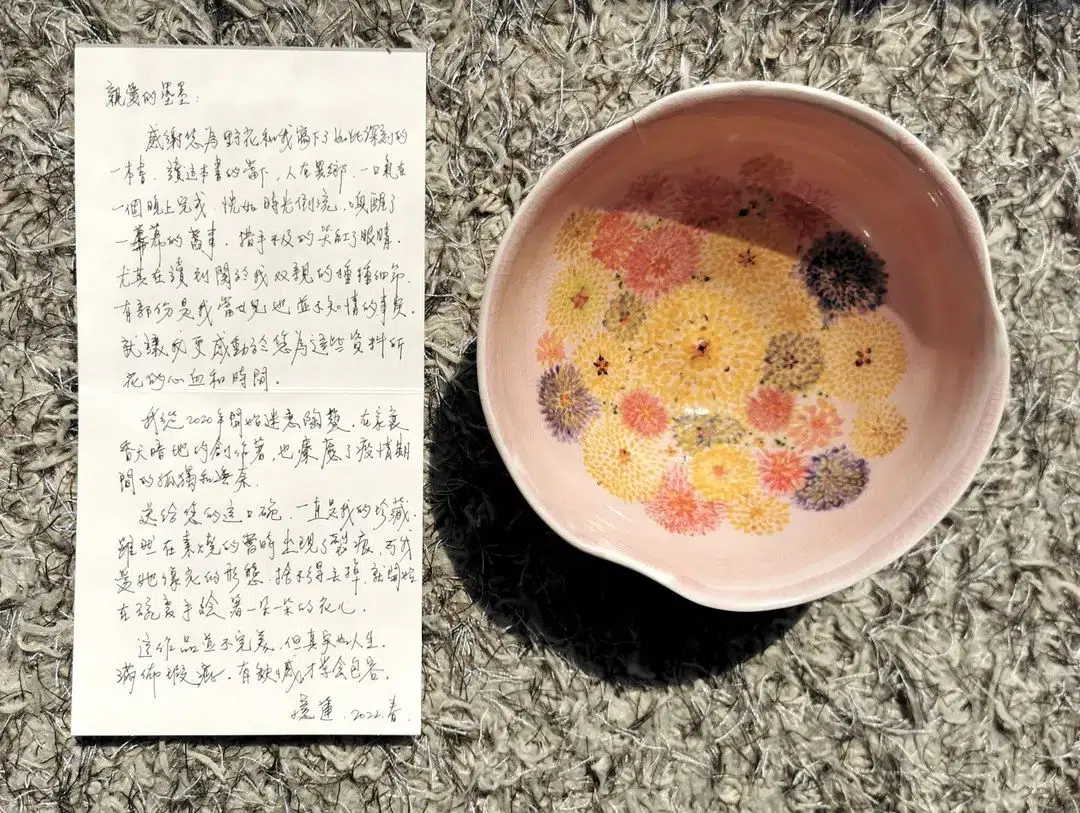 親愛的墨墨：
感謝您為野花和我寫下了如此深刻的
一本書。讀這本書的當下，人在異鄉，一口氣在
一個晚上完成，恍如時光倒流，喚醒了
一幕幕的舊事，措手不及的哭紅了眼睛。
尤其在讀到關於我双親的種種細節，
有部份是我當女兒也並不知情的事實，
就讓我更感動於您為這些資料所
花的心血和時間。
我從2020年開始迷戀陶藝，在
昏天暗地的創作著，也療癒了疫情期
間的孤獨和無奈。
送給您的這口碗，一直是我的珍藏，
雖然在素燒的當時出現了裂痕，而我
愛她像完的形態，捨不得丟掉，就開始
在碗裏手繪著一朵一朵的花兒。
這作品並不完美，但真实如人生，
滿佈瑕疵，有缺憾才学会包容。
蓮．2022.春．